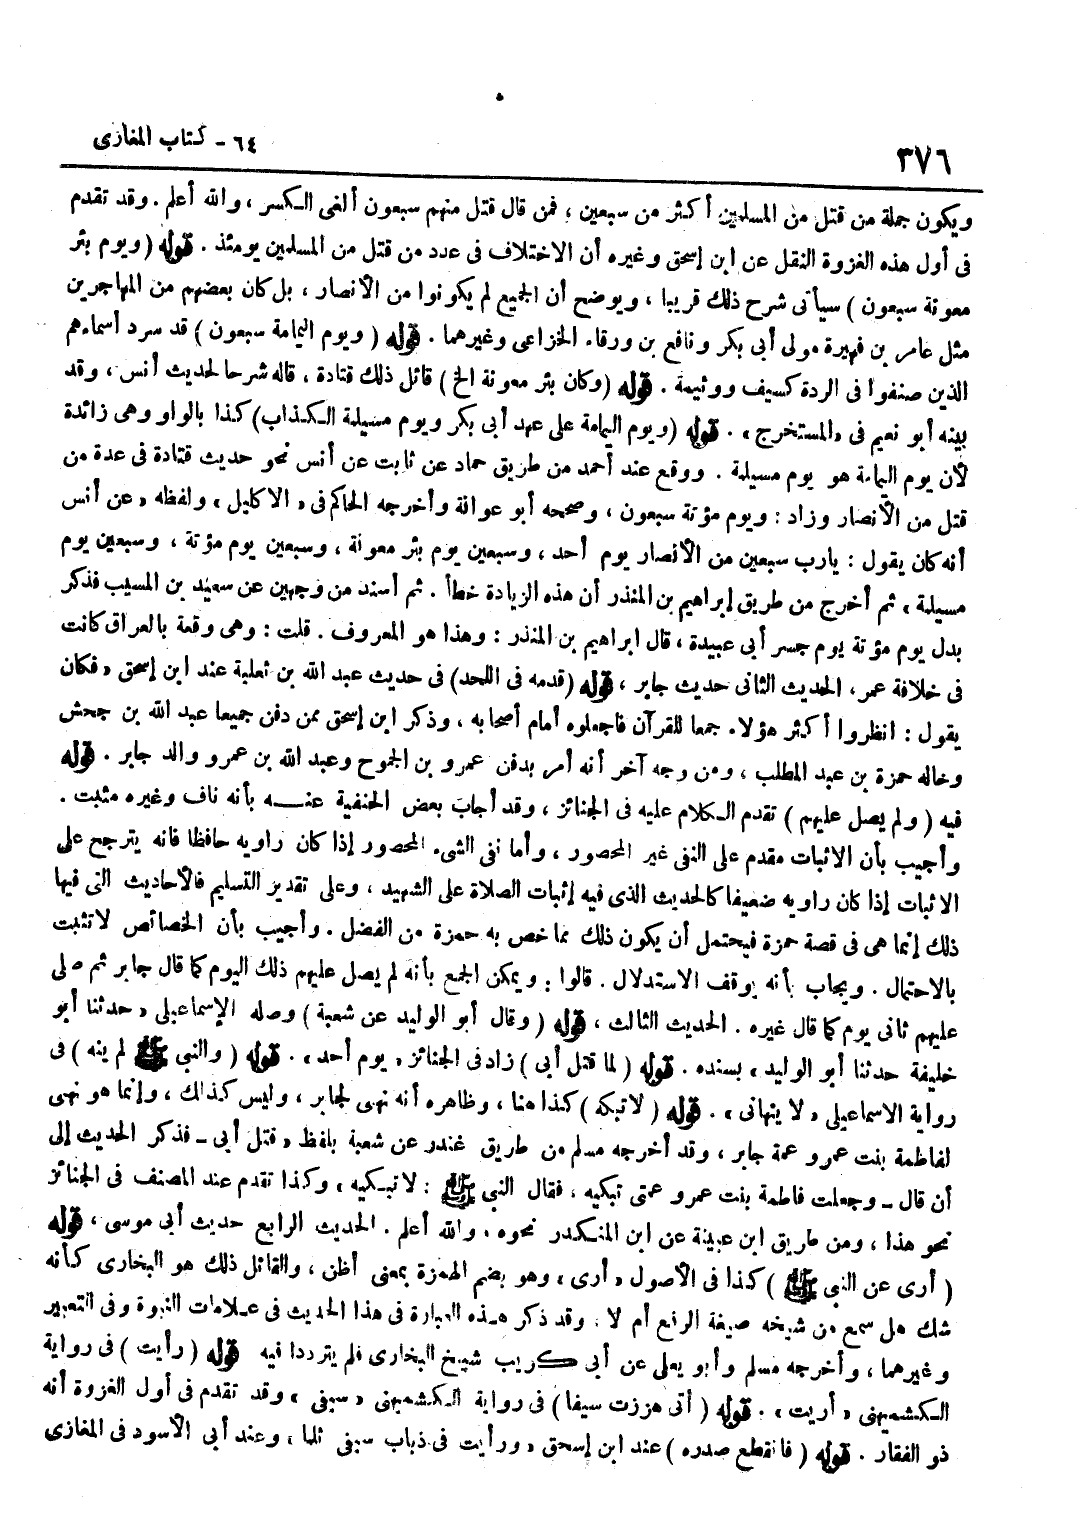 ٣٧٦
٦٤ - كتاب المغازى
ويكون جملة من قتل من المسلمين أكثر من سبعين ، فمن قال قتل منهم سبعون ألغى الكسر ، والله أعلم . وقد تقدم
فى أول هذه الغزوة النقل عن ابن إسحق وغيره أن الاختلاف فى عدد من قتل من المسلمين يومئذ . قوله ( ويوم بئر
معونة سبعون ) سيأتى شرح ذلك قريبا ، ويوضح أن الجميع لم يكونوا من الأنصار ، بل كان بعضهم من المهاجرين
مثل عامر بن فهيرة مولى أبى بكر ونافع بن ورقاء الخزاعى وغيرهما . قوله ( ويوم اليمامة سبعون ) قد سرد أسماءهم
الذين صنفوا فى الردة كسيف ووثيمة . قوله ( وكان بئر معونة الخ ) قائل ذلك قتادة ، قاله شرحا لحديث أنس ، وقد
بينه أبو نعيم فى « المستخرج » . قوله ( ويوم اليمامة على عهد أبى بكر ويوم مسيلمة الكذاب ) كذا بالواو وهى زائدة
لأن يوم اليمامة هو يوم مسيلمة . ووقع عند أحمد من طريق حماد عن ثابت عن أنس نحو حديث قتادة فى عدة من
قتل من الأنصار وزاد : ويوم مؤتة سبعون ، وصححه أبو عوانة وأخرجه الحاكم فى « الاكليل » ولفظه « عن أنس
أنه كان يقول : يارب سبعين من الأنصار يوم أحد ، وسبعين يوم بئر معونة ، وسبعين يوم مؤتة ، وسبعين يوم
مسيلمة » ثم أخرج من طريق إبراهيم بن المنذر أن هذه الزيادة خطأ . ثم أسند من وجهين عن سعيد بن المسيب فذكر
بدل يوم مؤتة يوم جسر أبى عبيدة ، قال ابراهيم بن المنذر : وهذا هو المعروف . قلت : وهى وقعة بالعراق كانت
فى خلافة عمر . الحديث الثانى حديث جابر ، قوله ( قدمه فى اللحد ) فى حديث عبد الله بن ثعلبة عند ابن إسحق « فكان
يقول : انظروا أكثر هؤلاء جمعا للقرآن فاجعلوه أمام أصحابه ، وذكر ابن إسحق ممن دفن جميعا عبد الله بن جحش
وخاله حمزة بن عبد المطلب ، ومن وجه آخر أنه أمر بدفن عمرو بن الجموح وعبد الله بن عمرو والد جابر . قوله
فيه ( ولم يصل عليهم ) تقدم الكلام عليه فى الجنائز ، وقد أجاب بعض الحنفية عنه بأنه ناف وغيره مثبت .
وأجيب بأن الاثبات مقدم على النفى غير المحصور ، وأما نفى الشىء المحصور إذا كان راويه حافظا فانه يترجح على
الاثبات إذا كان راويه ضعيفا كالحديث الذى فيه إثبات الصلاة على الشهيد ، وعلى تقدير التسليم فالأحاديث التى فيها
ذلك إنما هى فى قصة حمزة فيحتمل أن يكون ذلك مما خص به حمزة من الفضل . وأجيب بأن الخصائص لا تثبت
بالاحتمال . ويجاب بأنه يوقف الاستدلال . قالوا : ويمكن الجمع بأنه لم يصل عليهم ذلك اليوم كما قال جابر ثم صلى
عليهم ثانى يوم كما قال غيره . الحديث الثالث ، قوله ( وقال أبو الوليد عن شعبة ) وصله الإسماعيلى « حدثنا أبو
خليفة حدثنا أبو الوليد » بسنده . قوله ( لما قتل أبى ) زاد فى الجنائز « يوم أحد » . قوله ( والنبى ﷺ لم ينه ) فى
رواية الاسماعيلى « لا ينهانى » . قوله ( لا تبكه ) كذا هنا ، وظاهره أنه نهى لجابر ، وليس كذلك ، وإنما هو نهى
لفاطمة بنت عمرو عمة جابر ، وقد أخرجه مسلم من طريق غندر عن شعبة بلفظ « قتل أبى - فذكر الحديث إلى
أن قال - وجعلت فاطمة بنت عمرو عمتى تبكيه ، فقال النبى ﷺ : لا تبكيه » وكذا تقدم عند المصنف فى الجنائز
نحو هذا ، ومن طريق ابن عيينة عن ابن المنكدر نحوه . والله أعلم . الحديث الرابع حديث أبى موسى ، قوله
( أرى عن النبى ﷺ ) كذا فى الأصول « أرى » وهو بضم الهمزة بمعنى أظن ، والقائل ذلك هو البخارى كأنه
شك هل سمع من شيخه صيغة الرفع أم لا ، وقد ذكر هذه العبارة فى هذا الحديث فى علامات النبوة وفى التعبير
وغيرهما ، وأخرجه مسلم وأبو يعلى عن أبى كريب شيخ البخارى فلم يترددا فيه قوله ( رأيت ) فى رواية
الكشميهنى « أريت » . قوله ( أنى هززت سيفا ) فى رواية الكشميهنى « سيفى » وقد تقدم فى أول الغزوة أنه
ذو الفقار . قوله ( فانقطع صدره ) عند ابن إسحق « ورأيت فى ذباب سيفى ثلما » وعند أبى الأسود فى المغازى